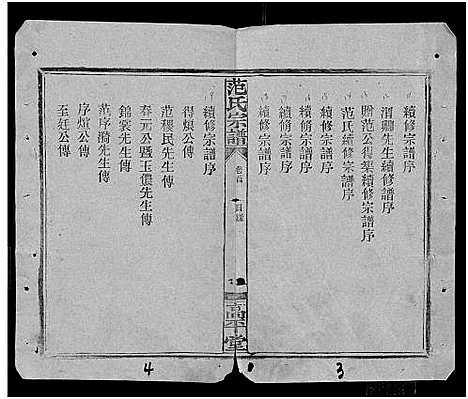 續修宗譜序
渭卿先生續修譜序
贈范公得榘續修宗譜序
范氏續修宗譜序
續修宗譜序
續脩宗譜序
續脩宗譜序
續脩宗譜序
范氏宗譜
卷首
目錄
高平堂
續修宗譜序
得煩公傳
范稷民先生傳
春元公暨玉儂先生傳
錦裳先生傳
范序漪先生傳
序煊公傳
至鈺公傳
3
4